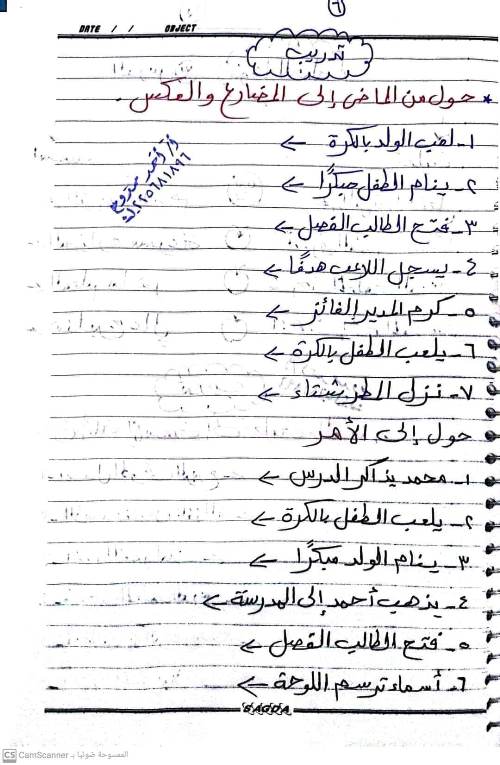 ٦
DATE / / OBJECT
تدريب
* حول من الماضى إلى المضارع والعكس.
١- لعب الولد بالكرة ←
٢- ينام الطفل مبكرًا ←
٣- فتح الطالب الفصل ←
٤- يسجل اللاعب هدفًا ←
٥- كرم المدير الفائز ←
٦- يلعب الطفل بالكرة ←
٧- نزل المطر شتاء ←
حول إلى الأمر
١- محمد يذاكر الدرس ←
٢- يلعب الطفل بالكرة ←
٣- ينام الولد مبكرًا ←
٤- يذهب أحمد إلى المدرسة ←
٥- فتح الطالب الفصل ←
٦- أسماء ترسم اللوحة ←
CS CamScanner الممسوحة ضوئيا بـ